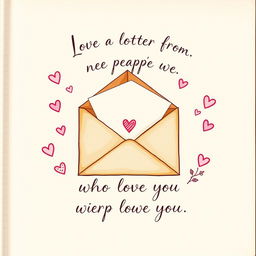 Love a lotter from.
nee peapp'e we.
who love you
wierp lowe you.